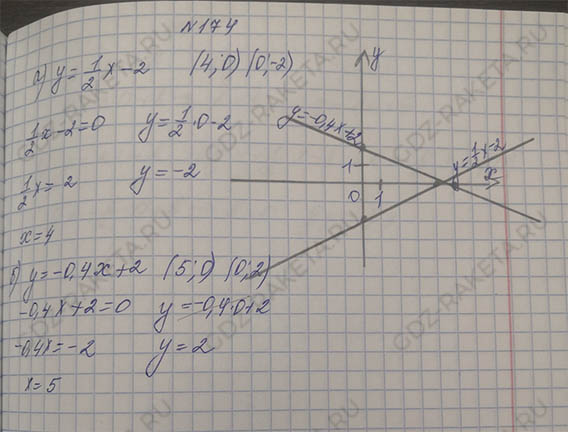 №174
а) y = 1/2 x - 2 (4; 0) (0; -2)
1/2 x - 2 = 0 y = 1/2 · 0 - 2
1/2 x = 2 y = -2
x = 4
б) y = -0,4x + 2 (5; 0) (0; 2)
-0,4x + 2 = 0 y = -0,4·0+2
-0,4x = -2 y = 2
x = 5
y
y = -0,4x+2
y = 1/2 x - 2
x
1
0
1
GDZ-RAKETA.RU
GDZ-RAKETA.RU
GDZ-RAKETA.RU
GDZ-RAKETA.RU